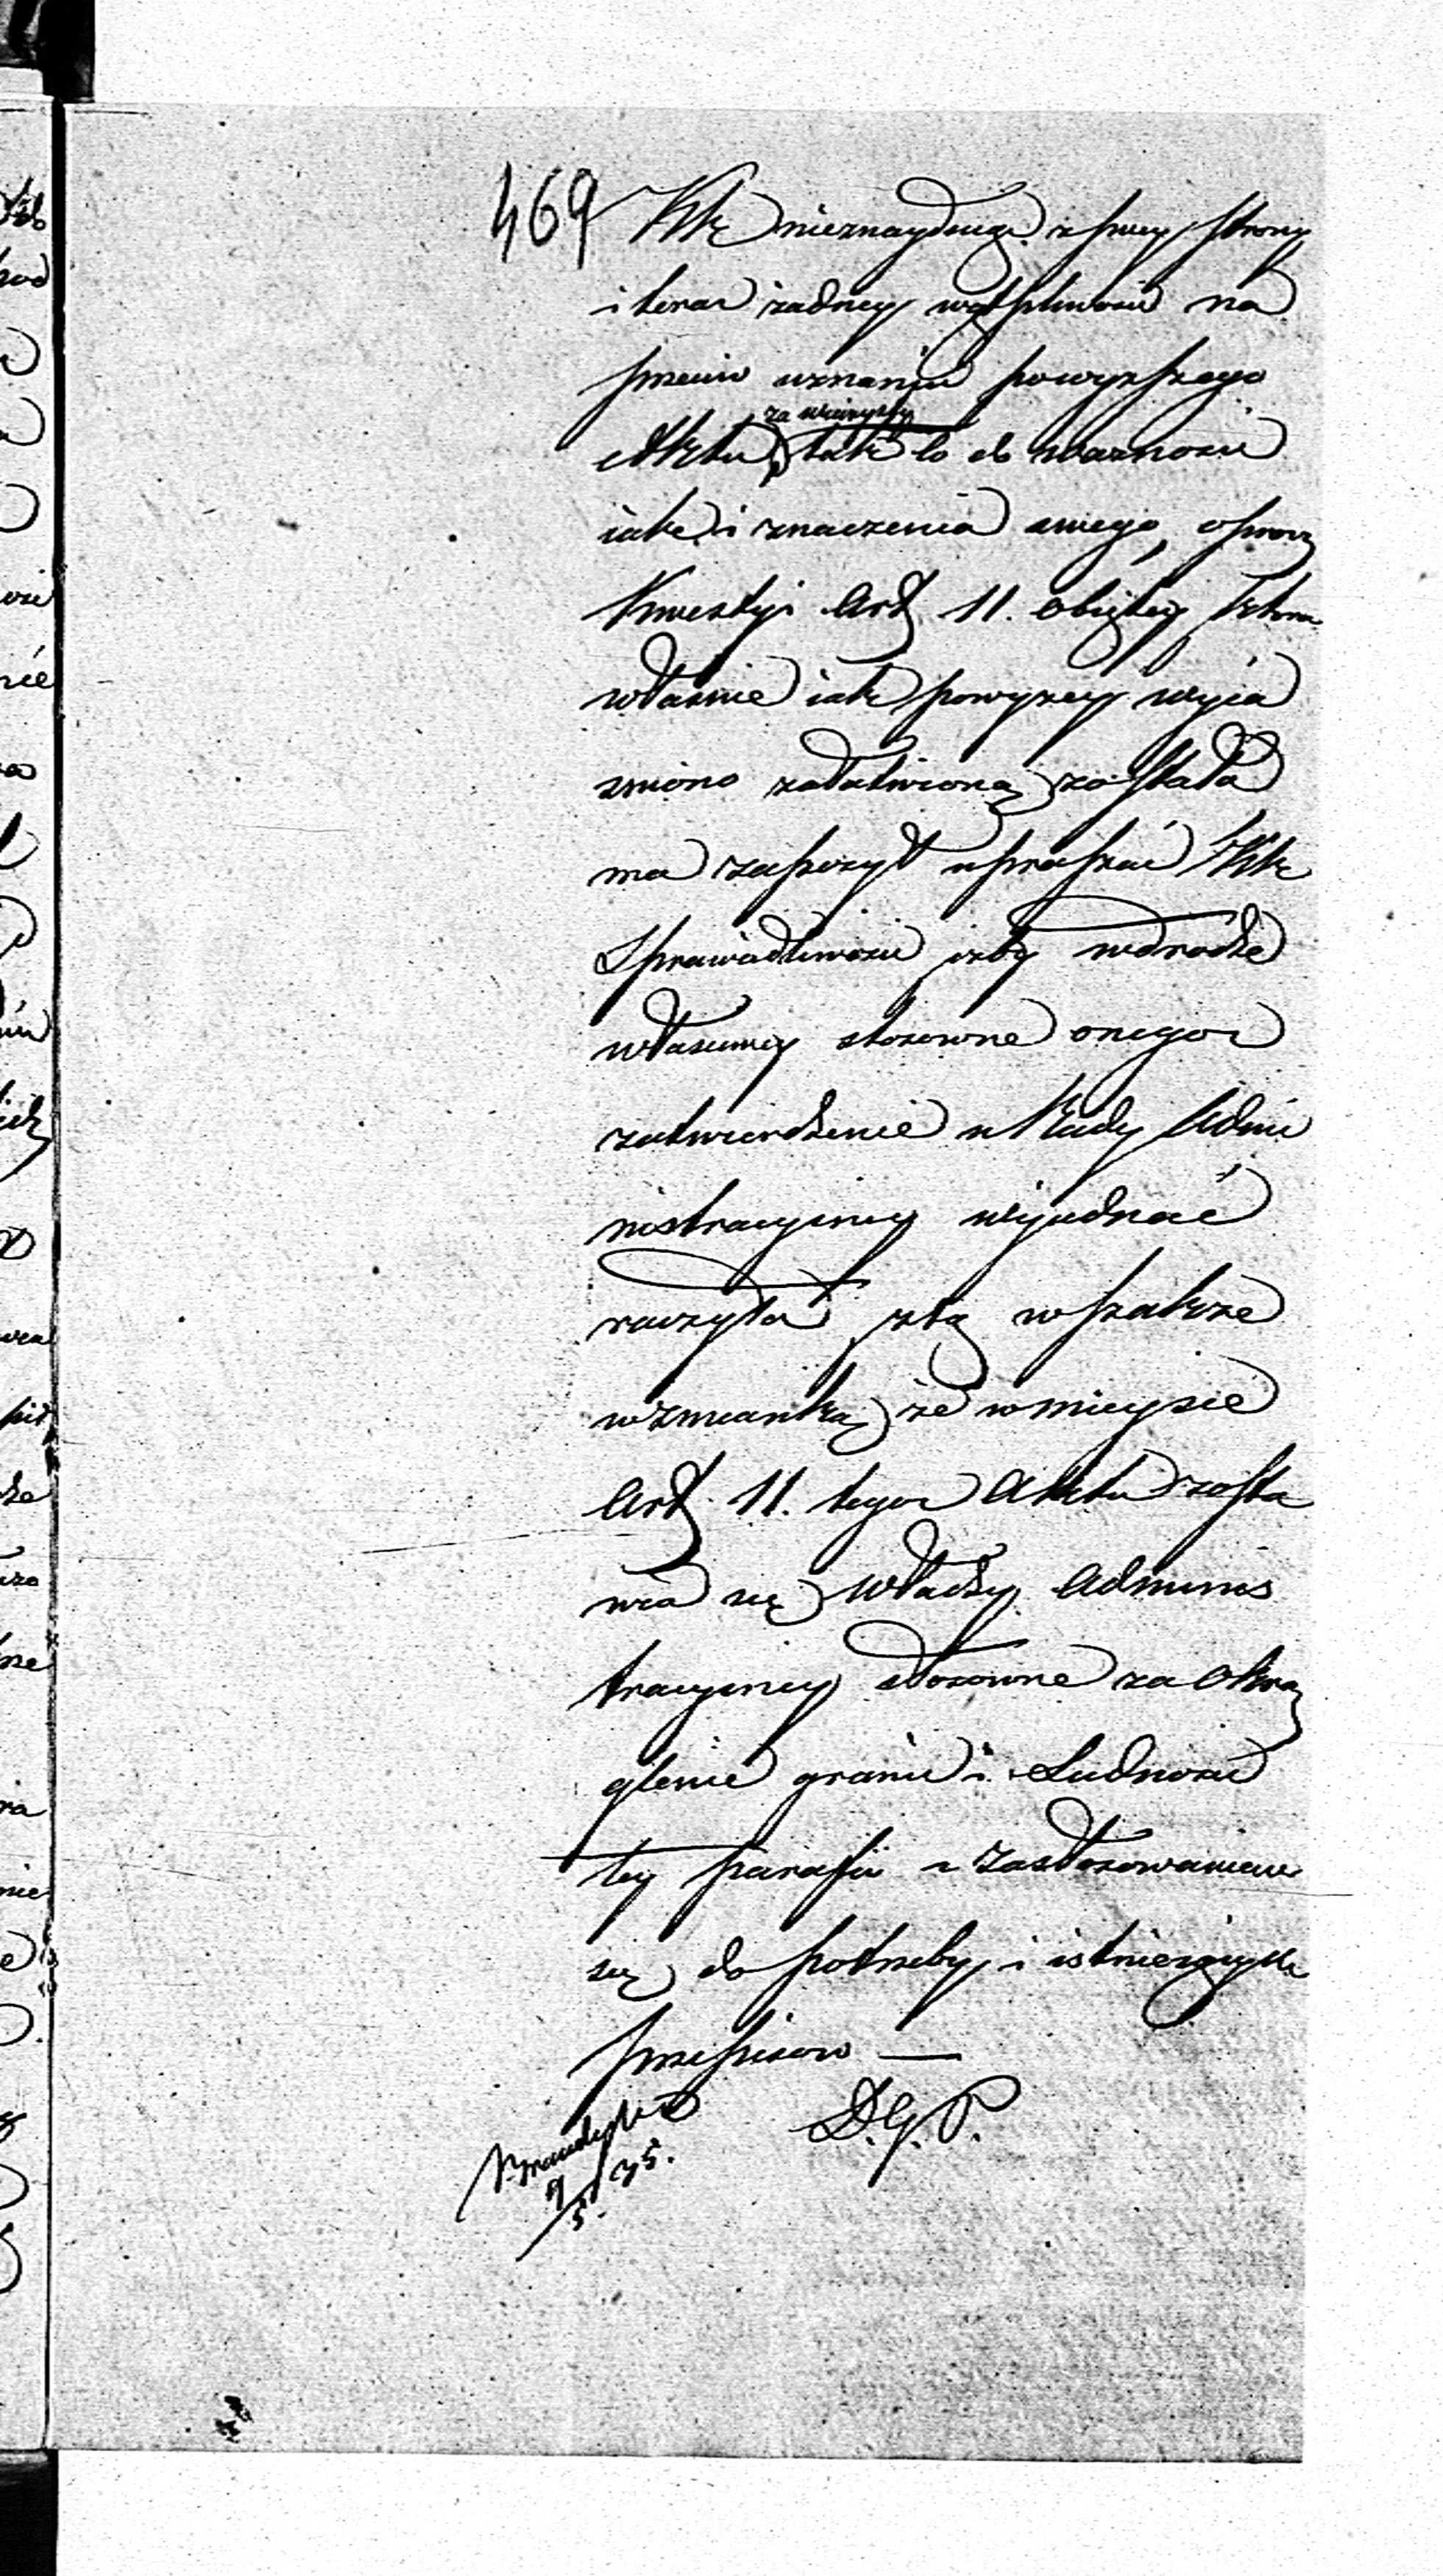 469 KRz nieznayduiąc z swey strony
i teraz żadney wątpliwości na
przeciw uznaniu powyższego
za wieczysty
Aktu, tak co do ważności
iako i znaczenia swego, oprocz
kwestyi Art 11. obiętey która
właśnie iak powyżey wyia
śniono załatwioną została
ma zaszczyt upraszać KRz
Sprawiedliwości ażby w drodze
właściwey stosowne onegoż
zatwierdzenie u Rady Admi
nistracyiney wyjednać
raczyła z tą wszakże
wzmianką że w mieysce
Art 11. tegoż Aktu zosta
wia się Władzy Adminis
tracyiney stosowne zaokrą
glenie granic i Ludności
tey parafii z zastosowaniem
się do potrzeby i istnieiących
przepisow —
D. G. P.
9/5 35.